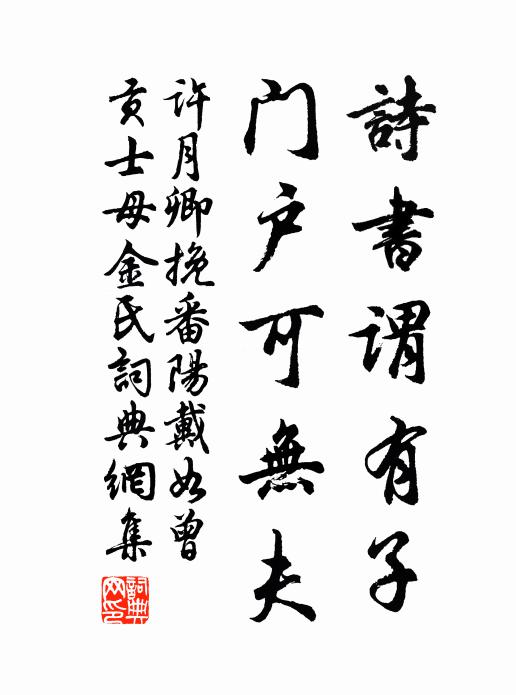 詩書謂有子
门户可無夫
许月卿挽番陽戴如曾
贡士母金氏詞典網集
詞典网印